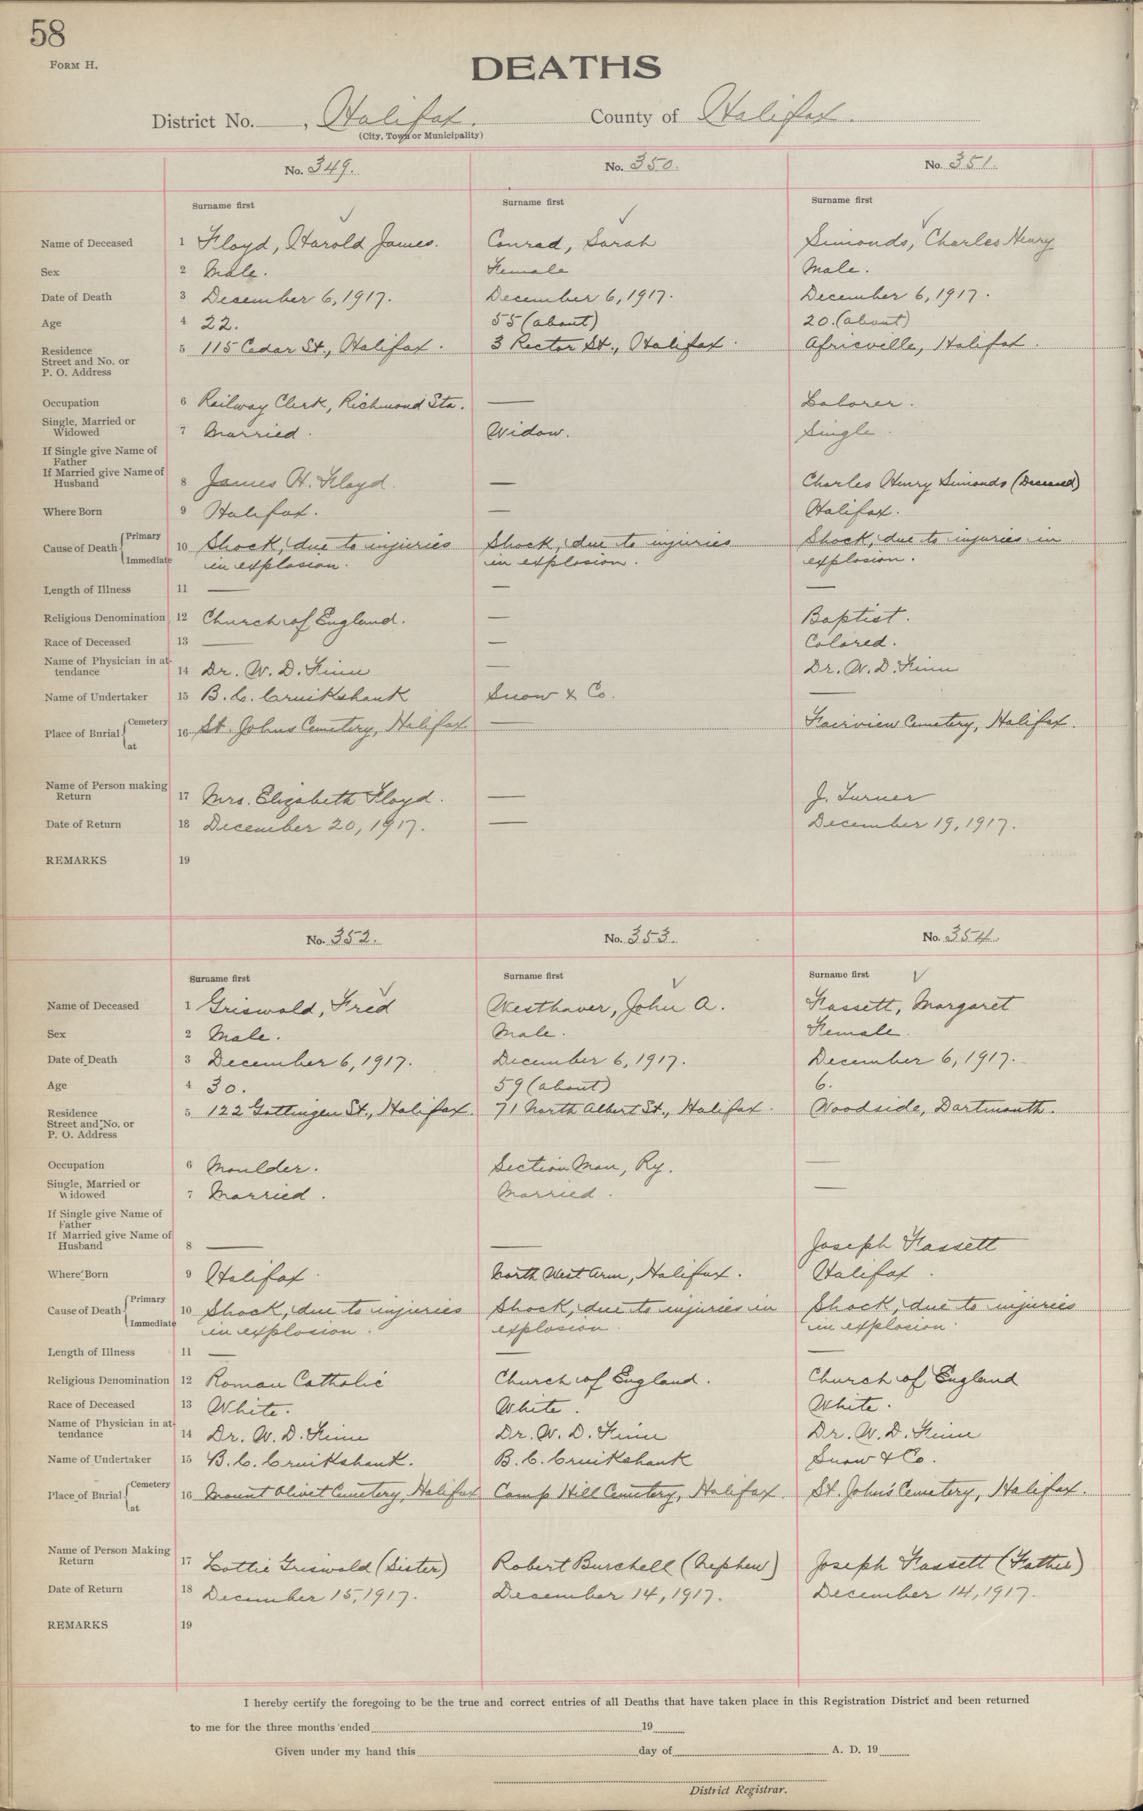 58
FORM H.
DEATHS
District No. , Halifax. County of Halifax.
(City, Town or Municipality)
No. 349. No. 350. No. 351.
Surname first Surname first Surname first
Name of Deceased 1 Floyd, Harold James. Conrad, Sarah Simonds, Charles Henry
Sex 2 Male. Female Male.
Date of Death 3 December 6, 1917. December 6, 1917. December 6, 1917.
Age 4 22. 55 (about) 20. (about)
Residence 5 115 Cedar St., Halifax. 3 Rector St., Halifax. Africville, Halifax.
Street and No. or
P. O. Address
Occupation 6 Railway Clerk, Richmond Sta. — Laborer.
Single, Married or
Widowed 7 Married. Widow. Single
If Single give Name of
Father
If Married give Name of
Husband 8 James H. Floyd. — Charles Henry Simonds (Deceased)
Where Born 9 Halifax. — Halifax.
Cause of Death { Primary 10 Shock, due to injuries Shock, due to injuries Shock, due to injuries in
Immediate in explosion. in explosion. explosion.
Length of Illness 11 — — —
Religious Denomination 12 Church of England. — Baptist.
Race of Deceased 13 — — Colored.
Name of Physician in at-
tendance 14 Dr. W. D. Finn — Dr. W. D. Finn
Name of Undertaker 15 B. C. Cruikshank Snow & Co. —
Place of Burial { Cemetery 16 St. Johns Cemetery, Halifax — Fairview Cemetery, Halifax.
at
Name of Person making
Return 17 Mrs. Elizabeth Floyd. — J. Turner
Date of Return 18 December 20, 1917. — December 19, 1917.
REMARKS 19
No. 352. No. 353. No. 354.
Surname first Surname first Surname first
Name of Deceased 1 Griswold, Fred Westhaver, John A. Fassett, Margaret
Sex 2 Male. Male. Female.
Date of Death 3 December 6, 1917. December 6, 1917. December 6, 1917.
Age 4 30. 59 (about) 6.
Residence 5 122 Gottingen St., Halifax. 71 North Albert St., Halifax. Woodside, Dartmouth.
Street and No. or
P. O. Address
Occupation 6 Moulder. Section Man, Ry. —
Single, Married or
Widowed 7 Married. Married. —
If Single give Name of
Father
If Married give Name of
Husband 8 — — Joseph Fassett
Where Born 9 Halifax. North West Arm, Halifax. Halifax.
Cause of Death { Primary 10 Shock, due to injuries Shock, due to injuries in Shock, due to injuries
Immediate in explosion. explosion. in explosion.
Length of Illness 11 — — —
Religious Denomination 12 Roman Catholic Church of England. Church of England
Race of Deceased 13 White. White. White.
Name of Physician in at-
tendance 14 Dr. W. D. Finn Dr. W. D. Finn Dr. W. D. Finn
Name of Undertaker 15 B. C. Cruikshank. B. C. Cruikshank Snow & Co.
Place of Burial { Cemetery 16 Mount Olivet Cemetery, Halifax Camp Hill Cemetery, Halifax. St. John's Cemetery, Halifax.
at
Name of Person Making
Return 17 Lottie Griswold (Sister) Robert Burchell (Nephew) Joseph Fassett (Father)
Date of Return 18 December 15, 1917. December 14, 1917. December 14, 1917.
REMARKS 19
I hereby certify the foregoing to be the true and correct entries of all Deaths that have taken place in this Registration District and been returned
to me for the three months ended 19
Given under my hand this day of A. D. 19
District Registrar.